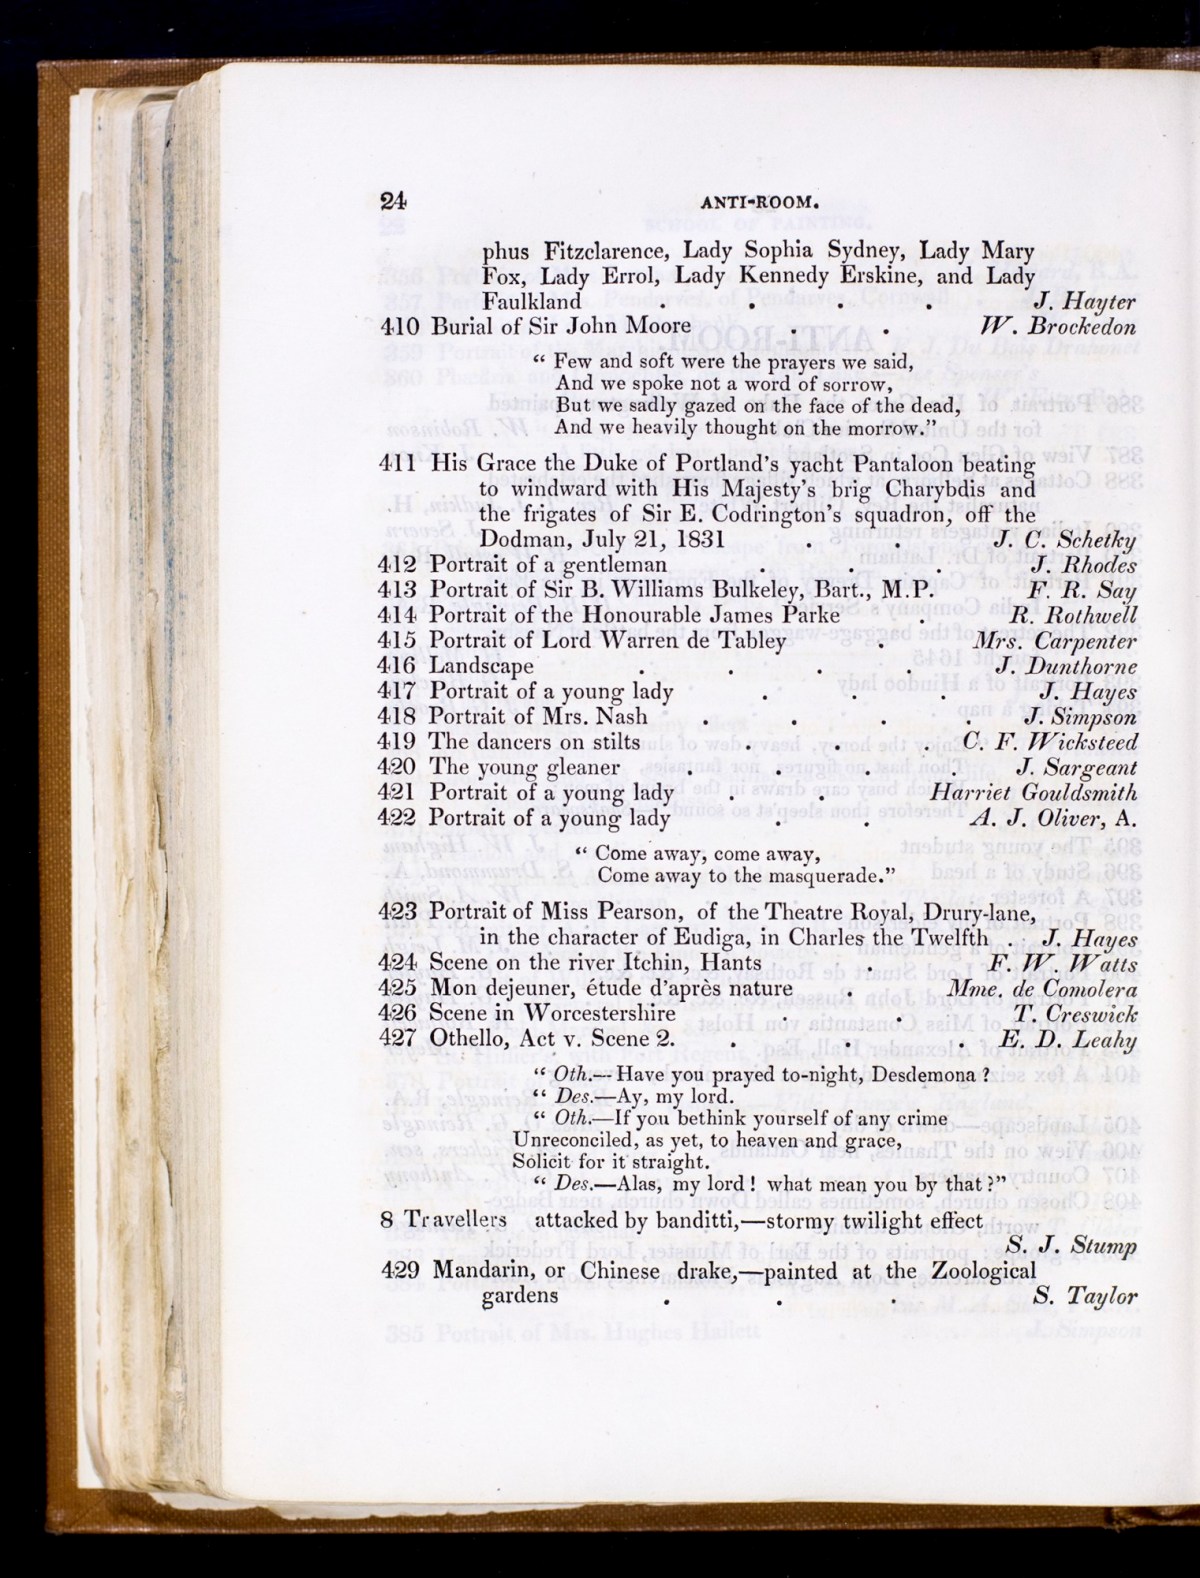 24 ANTI-ROOM.
phus Fitzclarence, Lady Sophia Sydney, Lady Mary
Fox, Lady Errol, Lady Kennedy Erskine, and Lady
Faulkland . . . . J. Hayter
410 Burial of Sir John Moore . . W. Brockedon
“ Few and soft were the prayers we said,
And we spoke not a word of sorrow,
But we sadly gazed on the face of the dead,
And we heavily thought on the morrow.”
411 His Grace the Duke of Portland’s yacht Pantaloon beating
to windward with His Majesty’s brig Charybdis and
the frigates of Sir E. Codrington’s squadron, off the
Dodman, July 21, 1831 . . J. C. Schetky
412 Portrait of a gentleman . . . J. Rhodes
413 Portrait of Sir B. Williams Bulkeley, Bart., M.P. F. R. Say
414 Portrait of the Honourable James Parke . R. Rothwell
415 Portrait of Lord Warren de Tabley . Mrs. Carpenter
416 Landscape . . . . J. Dunthorne
417 Portrait of a young lady . . . J. Hayes
418 Portrait of Mrs. Nash . . . . J. Simpson
419 The dancers on stilts . . . C. F. Wicksteed
420 The young gleaner . . . . J. Sargeant
421 Portrait of a young lady . . Harriet Gouldsmith
422 Portrait of a young lady . . A. J. Oliver, A.
“ Come away, come away,
Come away to the masquerade.”
423 Portrait of Miss Pearson, of the Theatre Royal, Drury-lane,
in the character of Eudiga, in Charles the Twelfth . J. Hayes
424 Scene on the river Itchin, Hants . F. W. Watts
425 Mon dejeuner, étude d’après nature . Mme. de Comolera
426 Scene in Worcestershire . . T. Creswick
427 Othello, Act v. Scene 2. . . . E. D. Leahy
“ Oth.—Have you prayed to-night, Desdemona ?
“ Des.—Ay, my lord.
“ Oth.—If you bethink yourself of any crime
Unreconciled, as yet, to heaven and grace,
Solicit for it straight.
“ Des.—Alas, my lord ! what mean you by that ?”
8 Travellers attacked by banditti,—stormy twilight effect
S. J. Stump
429 Mandarin, or Chinese drake,—painted at the Zoological
gardens . . . S. Taylor